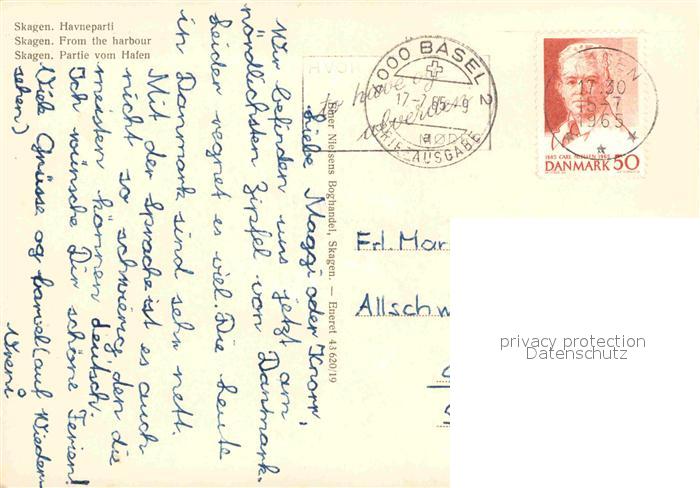 Skagen. Havneparti
Skagen. From the harbour
Skagen. Partie vom Hafen
Liebe Maggi oder Knorr,
Wir befinden uns jetzt am
nördlichsten Zipfel von Dänmark.
Leider regnet es viel. Die Leute
in Danmark sind sehr nett.
Mit der Sprache ist es auch
nicht so schwierig, den die
meisten können deutsch.
Ich wünsche Dir schöne Ferien!
Viele Grüsse og farvel (auf Wieder-
sehen)
Vreni
Einer Nielsens Boghandel, Skagen. — Eneret 43 620/19
4000 BASEL 2
17-7.65-19
BRIEFAUSGABE
17.30
5-7
965
1865 CARL NIELSEN 1965
DANMARK 50
Frl. Mar
Allschw
privacy protection
Datenschutz